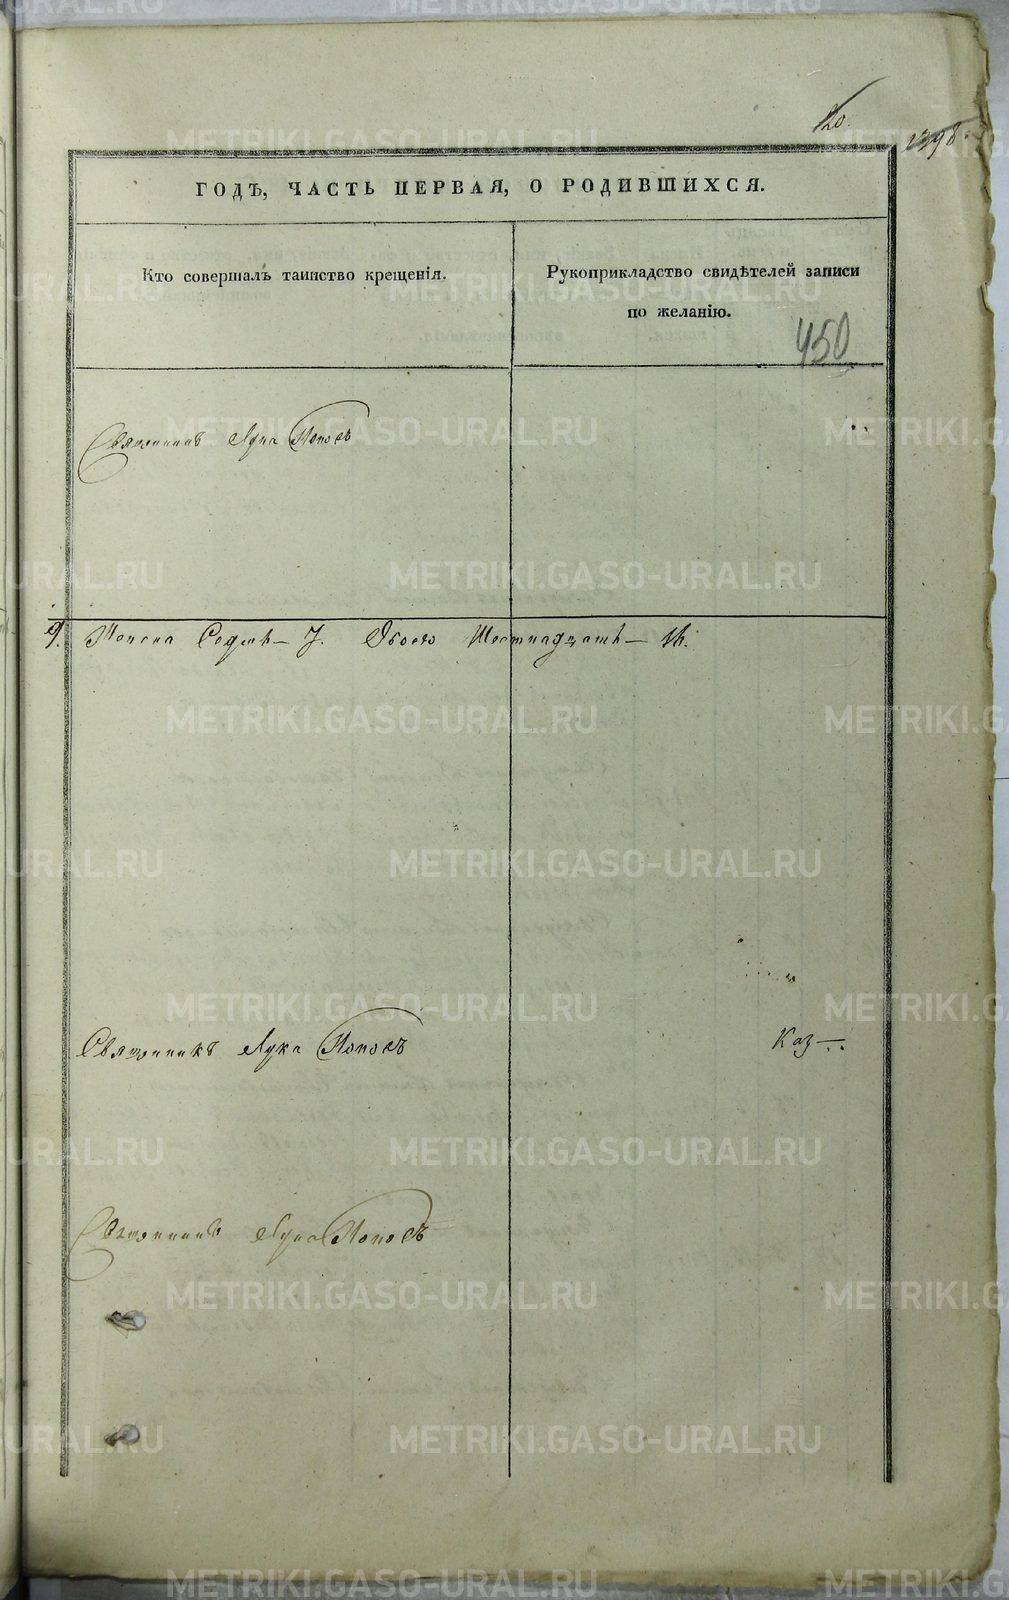 20.
1398.
ГОДѢ, ЧАСТЬ ПЕРВАЯ, О РОДИВШИХСЯ.
Кто совершалъ таинство крещенія.
Рукоприкладство свидѣтелей записи
по желанію.
450
Священникъ Лука Поповъ
9. Женска Седмь — 7. Обоего Шестнадцать — 16.
Священникъ Лука Поповъ
Каз —
Священникъ Лука Поповъ
METRIKI.GASO-URAL.RU